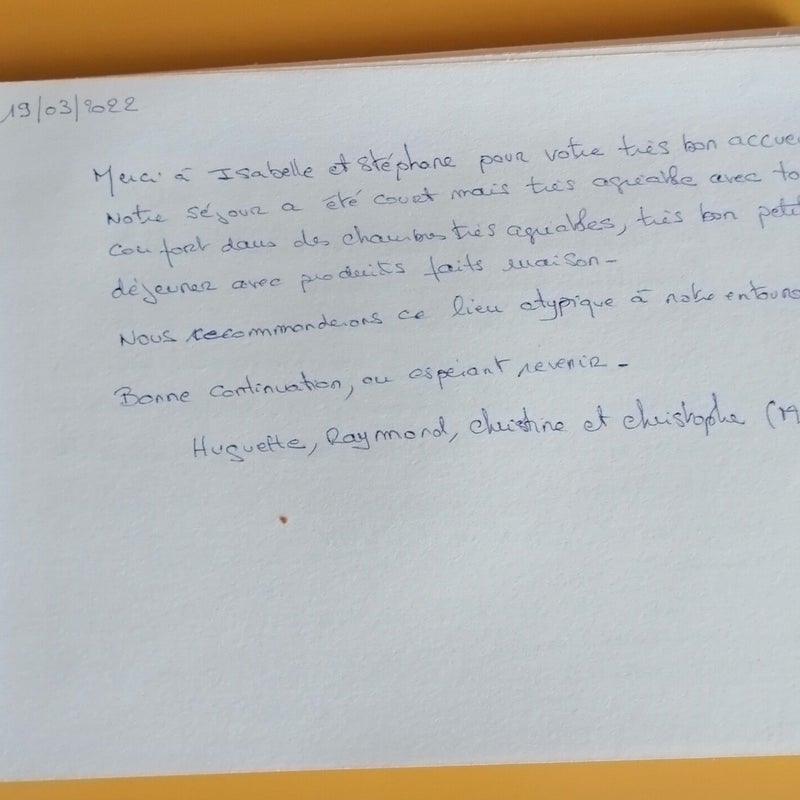 19/03/2022
Merci à Isabelle et Stéphane pour votre très bon accue
Notre séjour a été court mais très agréable avec to
confort dans des chambres très agréables, très bon petit
déjeuner avec produits faits maison -
Nous recommanderons ce lieu atypique à notre entoura
Bonne continuation, ou espérant revenir -
Huguette, Raymond, Christine et Christophe (